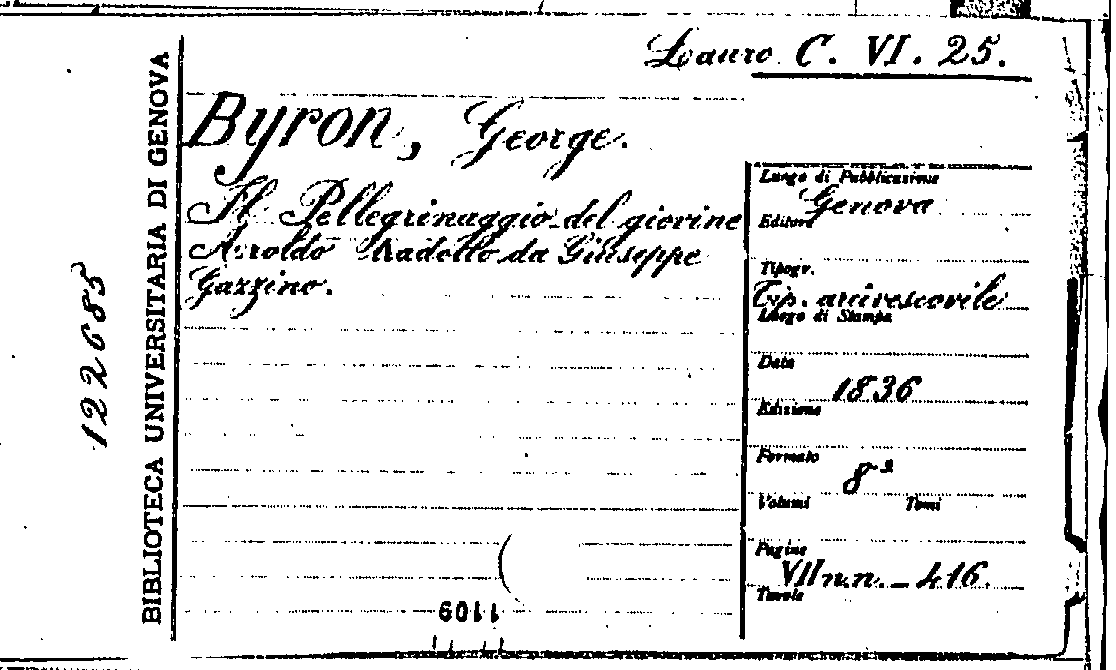 Lauro C. VI. 25.
BIBLIOTECA UNIVERSITARIA DI GENOVA
122685
Byron, George.
Il Pellegrinaggio del giovine
Aroldo tradotto da Giuseppe
Gazzino.
Luogo di Pubblicazione
Genova
Editore
Tipogr.
Tip. arcivescovile
Luogo di Stampa
Data
1836
Edizione
Formato
8°
Volumi Tomi
Pagine
VII n.n. - 416.
Tavole
1109